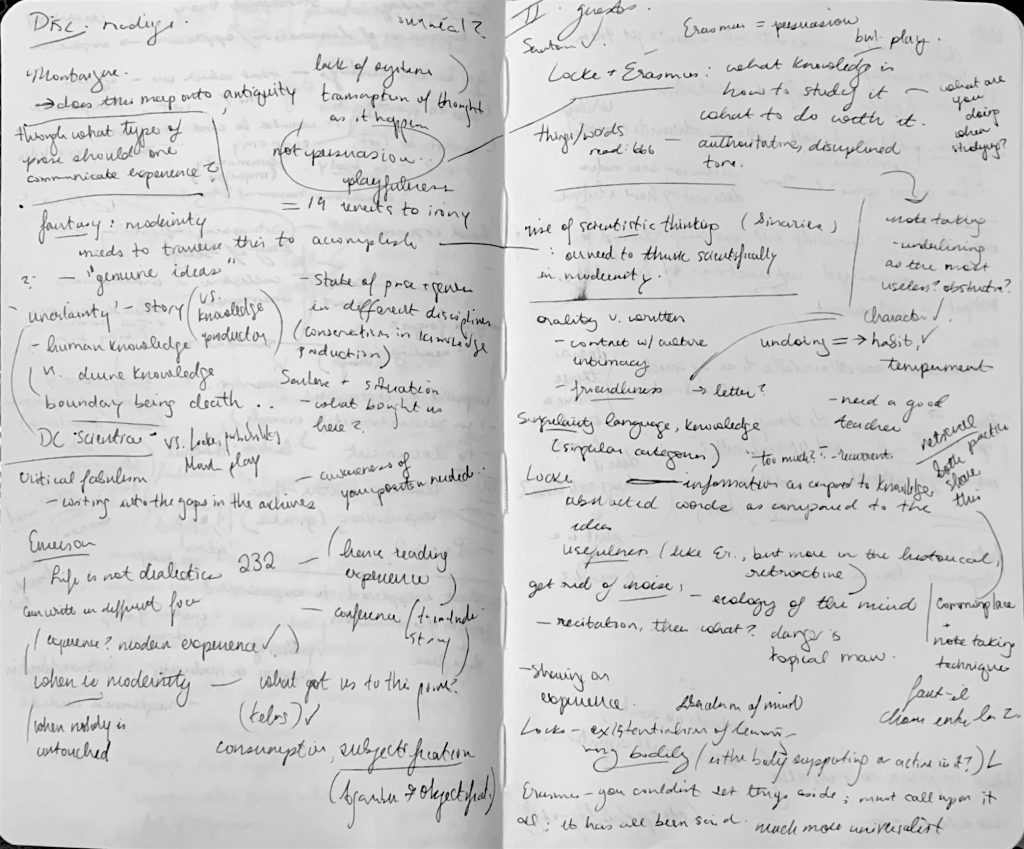 Disc. readings.
surreal?
Montaigne.
→ does this map onto antiquity
lack of system
transcription of thought
as it happen
through what type of
prose should one
communicate experience?
not persuasion...
playfulness
= 19 reverts to irony
fantasy: modernity
needs to traverse this to accomplish
? — "genuine ideas"
- uncertainty - story (vs. knowledge
production)
- human knowledge
vs. divine knowledge
boundary being death...
- state of prose + genre
in different disciplines
(conservatism in knowledge
production)
+ situation
- what bought us
here?
DC Scientia vs.
play
critical fabulism
- writing into the gaps in the archives
- awareness of
your position needed.
Emerson
, life is not dialectics 232
can write in different
— (hence reading
experience)
— conference (to include
story)
/ experience? modern experience ✓.)
when is modernity — what got us to this point?
(telos) ✓
when nobody is
untouched
consumption, subjectification
II guests.
Erasmus = persuasion
but play.
Locke + Erasmus: what knowledge is
how to study it —
what to do with it.
what are
you
doing
when
studying?
things/words
read: 666
— authoritative, disciplined
tone.
rise of scientistic thinking
: our need to think scientifically
in modernity
note taking
- underlining
as the most
useless? obstructive?
orality v. written
- contact w/ culture
intimacy
- friendliness → letter?
character ✓.
undoing = → habit, ✓
temperment
- need a good
teacher
Singularity language, knowledge
(singular categories)
too much? - recurrent.
retrieval
both practices
share
this
Locke
— information as compared to knowledge
abstracted words as compared to the
ideas
usefulness (like Er., but more in the historical,
)
get rid of noise,
- ecology of the mind
- recitation, then what? dangers
topical man.
commonplace
+
note taking
technique
- showing on
experience.
of mind
faut-il
Locke - existentialism of learning
very bodily (is the body supporting or active in it?) L
Erasmus - you couldn't set things aside; must call upon it
all; it has all been said. much more universalist